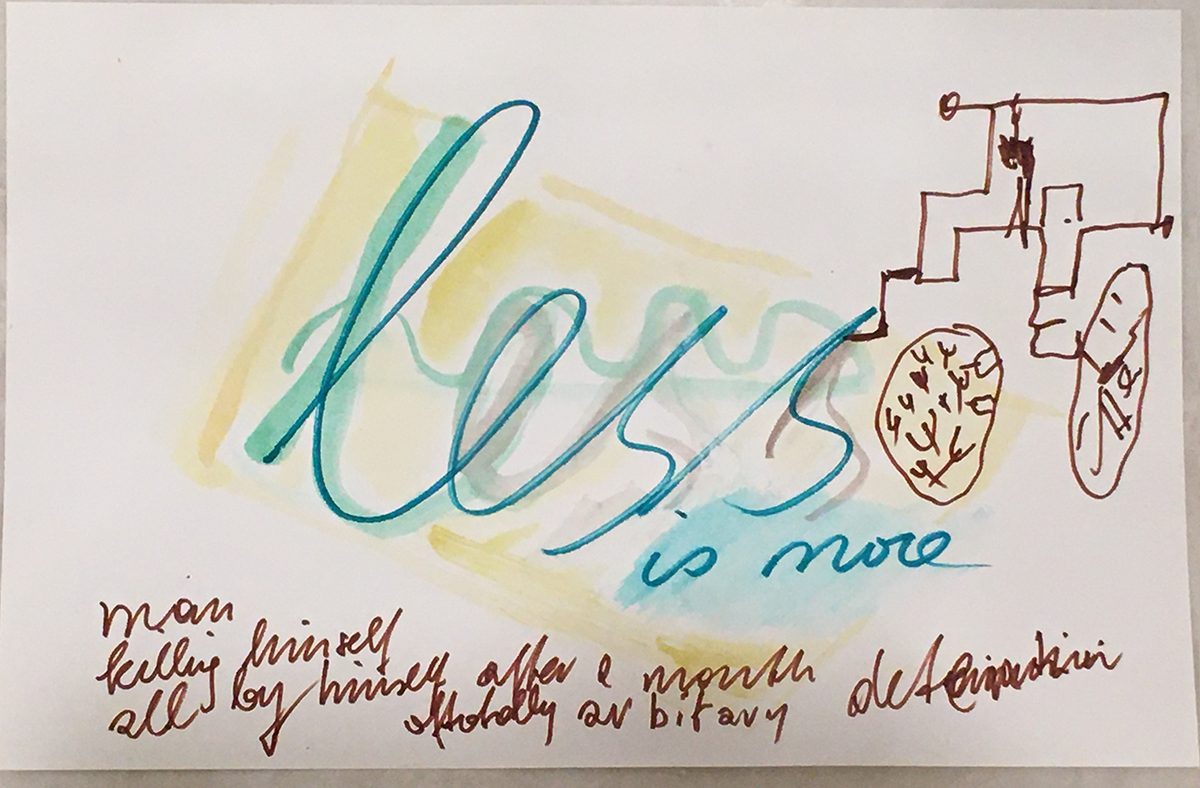 less
is more
man
killing himself
all by himself after a month
of totally arbitrary